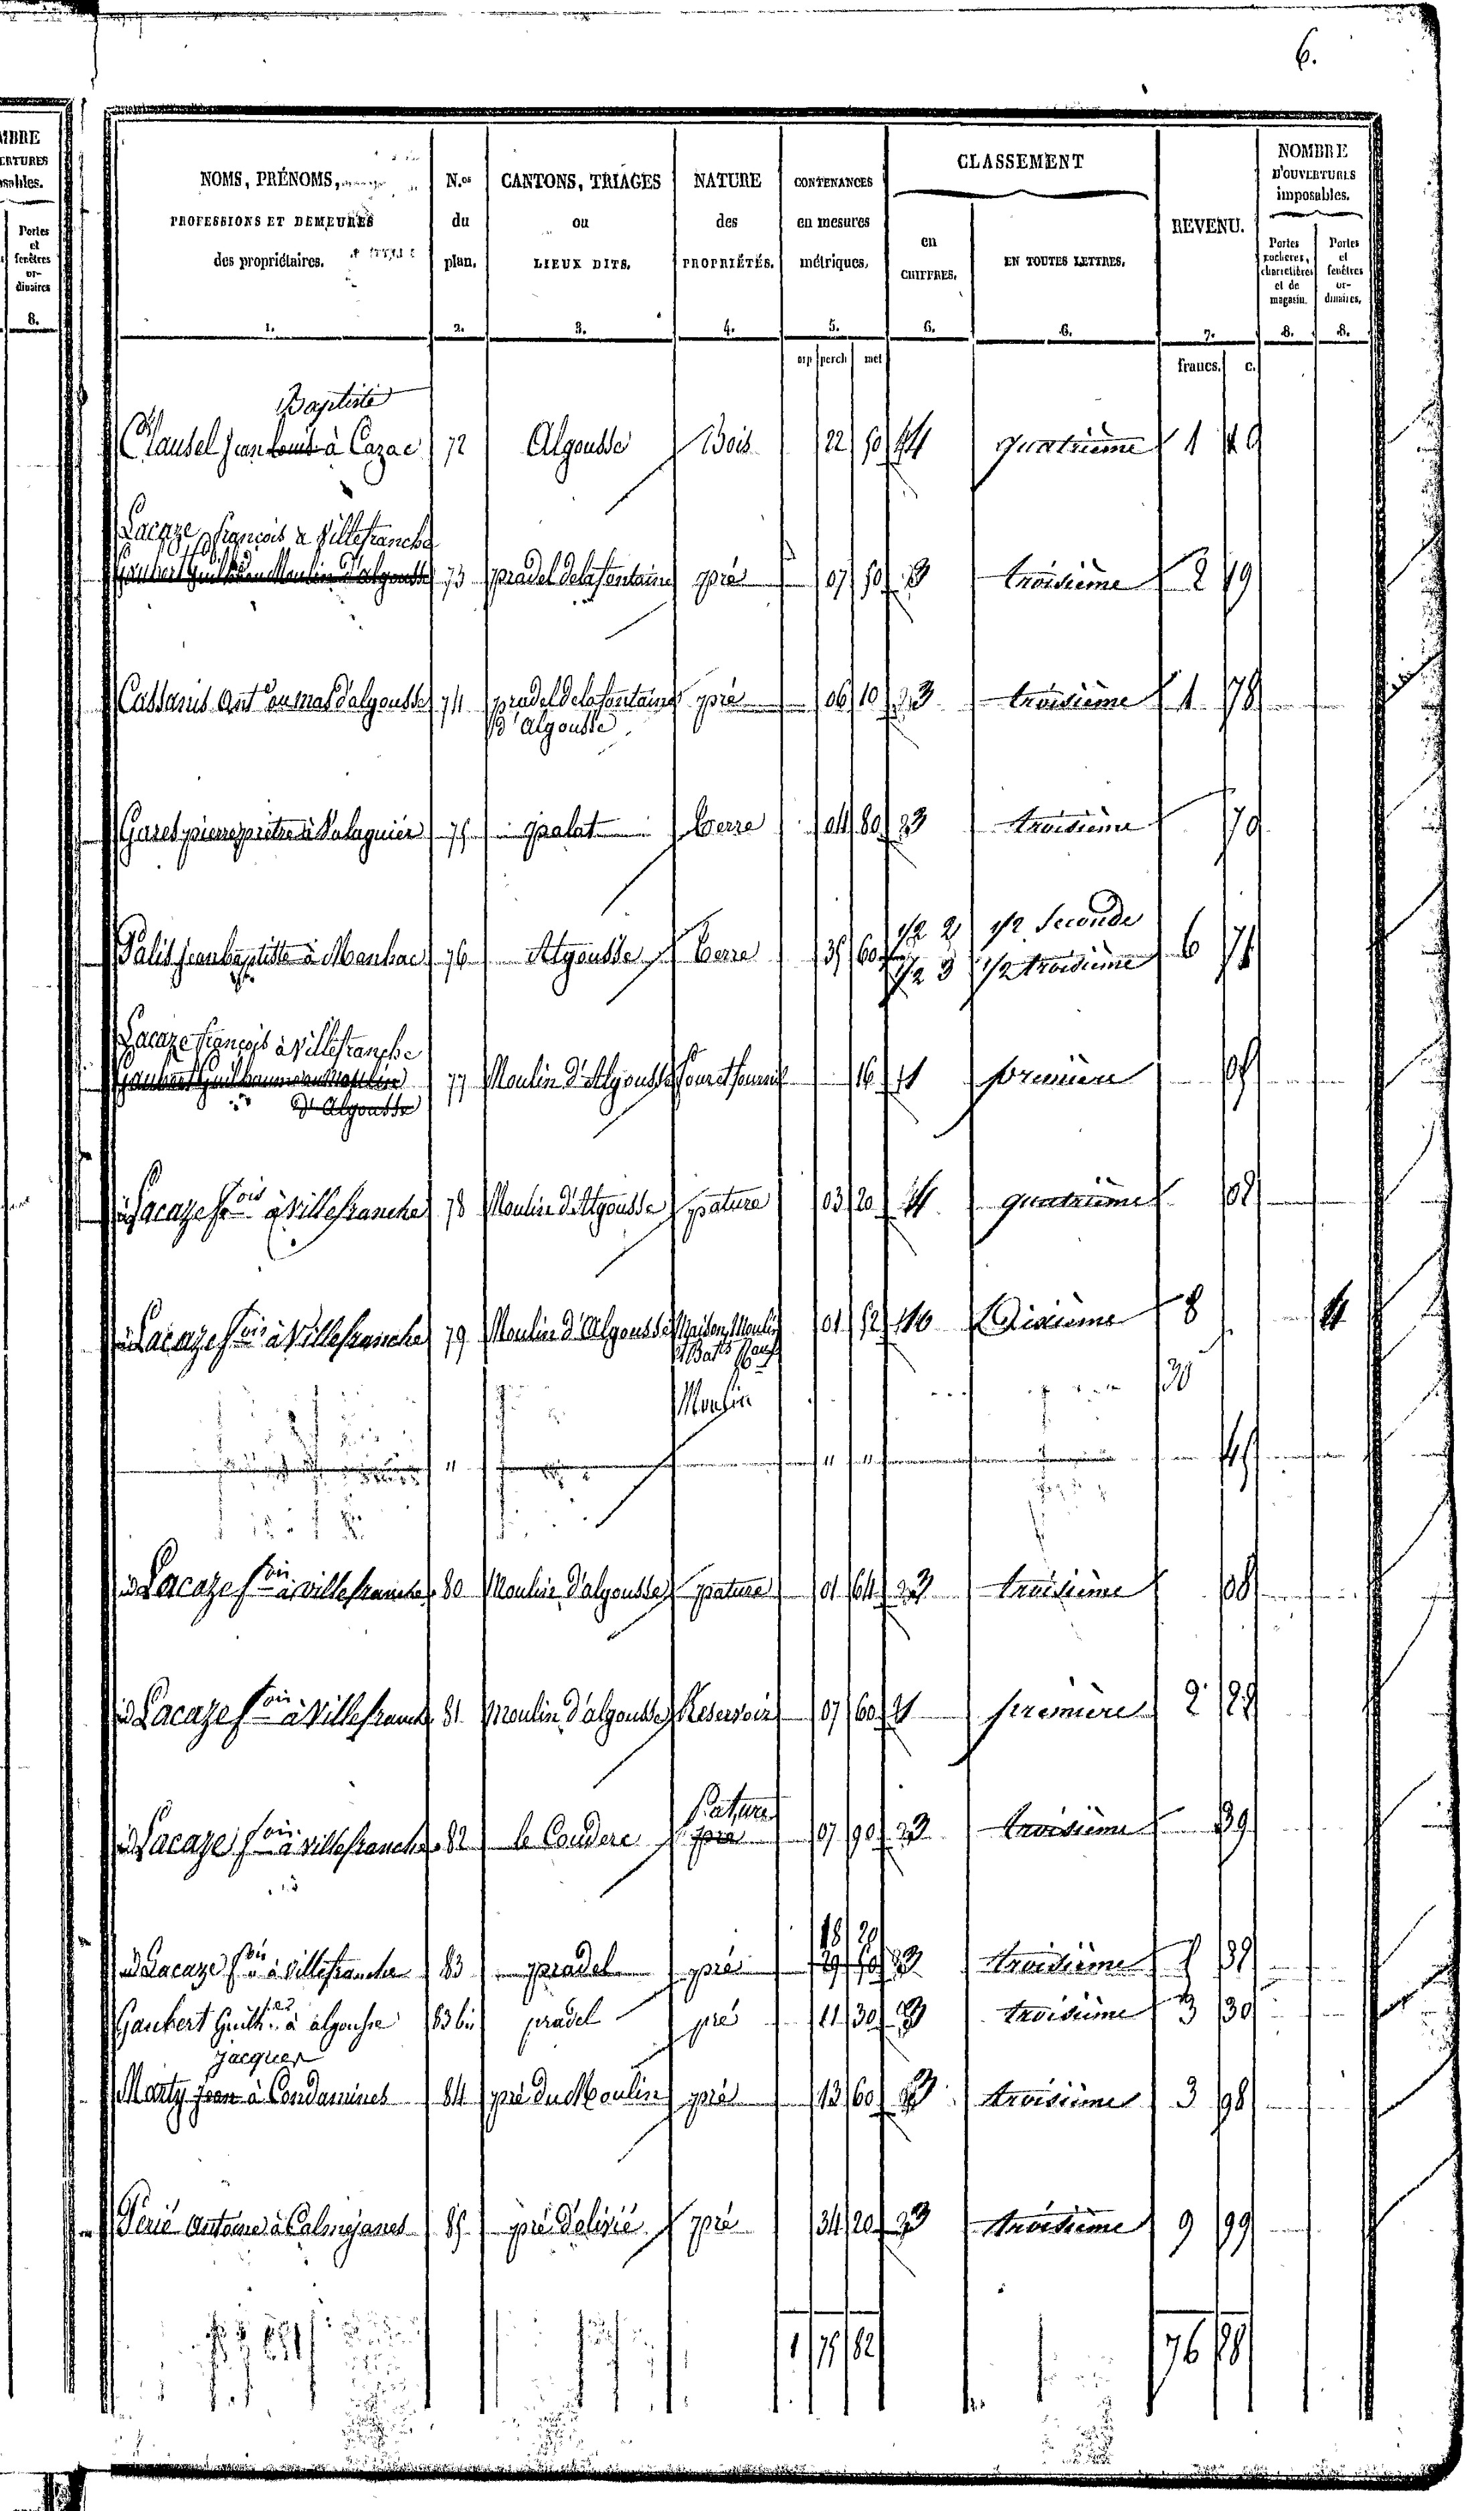 6.
MBRE
ERTURES
sables.
Portes
et
fenêtres
or-
dinaires
8.
NOMS, PRÉNOMS,
PROFESSIONS ET DEMEURES
des propriétaires.
1.
N.os
du
plan.
2.
CANTONS, TRIAGES
ou
LIEUX DITS.
3.
NATURE
des
PROPRIÉTÉS.
4.
CONTENANCES
en mesures
métriques,
5.
CLASSEMENT
en
CHIFFRES.
6.
EN TOUTES LETTRES.
6.
REVENU.
7.
NOMBRE
D'OUVERTURES
imposables.
Portes
cocheres,
charretières
et de
magasin.
8.
Portes
et
fenêtres
or-
dinaires.
8.
arp perch met
francs. c.
Baptiste
Clausel Jean Louis à Cazac 72 Algousse Bois 22 50 4 quatrième 1 49
Lacaze françois à Villefranche
Gaubert Guilh. au Moulin d'algousse 73 pradel de la fontaine pré 07 50 3 troisième 2 19
Cassanus Ant.e au mas d'algousse 74 pradel de la fontaine pré 06 10 3 troisième 1 78
d'Algousse
Gares pierre prêtre à Salaguier 75 palat terre 04 80 3 troisième 70
1/2 2 1/2 Seconde
Palis jean baptiste à Manhac 76 Algousse terre 35 60 1/2 3 1/2 troisième 6 71
Lacaze françois à Villefranche
Gaubert Guilhaume au Moulin 77 Moulin d'Algousse four et fournil 16 1 première 05
d'Algousse
Lacaze f.ois à Villefranche 78 Moulin d'Algousse pature 03 20 4 quatrième 08
Lacaze f.ois à Villefranche 79 Moulin d'Algousse Maison, Moulin 01 52 10 Dixième 8 4
30
Moulin
" " " 45
Lacaze f.ois à Villefranche 80 Moulin d'algousse pature 01 64 3 troisième 08
Lacaze f.ois à Villefranche 81 Moulin d'algousse Reservoir 07 60 1 première 2 28
Pature
Lacaze f.ois à Villefranche 82 le Couderc pré 07 90 3 troisième 39
18 20
Lacaze f.ois à Villefranche 83 pradel pré 29 50 3 troisième 5 32
Gaubert Guilh.. à algousse 83 bis pradel pré 11 30 3 troisième 3 30
jacques
Marty jean à Condamines 84 pré du Moulin pré 13 60 3 troisième 3 98
Périé Antoine à Calmejanes 85 pré d'elisié pré 34 20 3 troisième 9 99
1 75 82 76 88